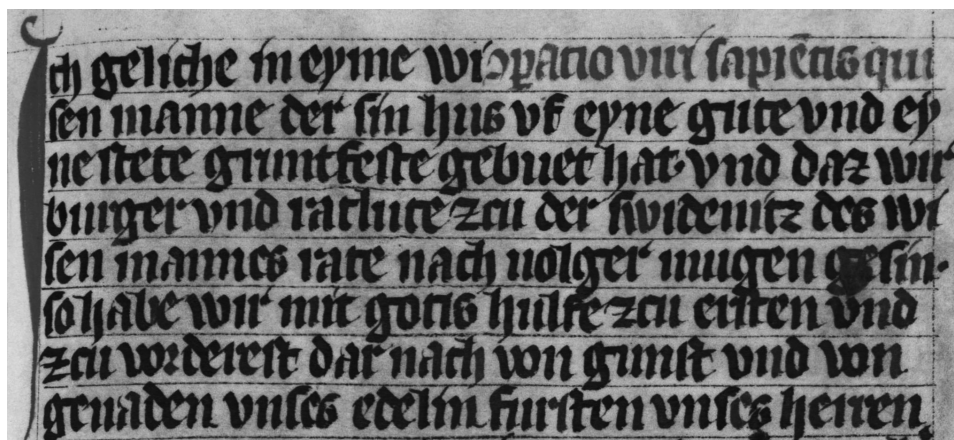 Ich geliche in eyme wi ꝯꝑatio viri sapiētis qui
sen manne der sin hus vf eyne gute vnd ey
ne stete gruntfeste gebuet hat· vnd daz wir
burger vnd ratlute zcu der swidenitz des wi
sen mannes rate nach uolger mugen gesin·
so habe wir mit gotis hulfe zcu ersten vnd
zcu vorderest dar nach von gunst vnd von
genaden vnses edelin fursten vnses herren